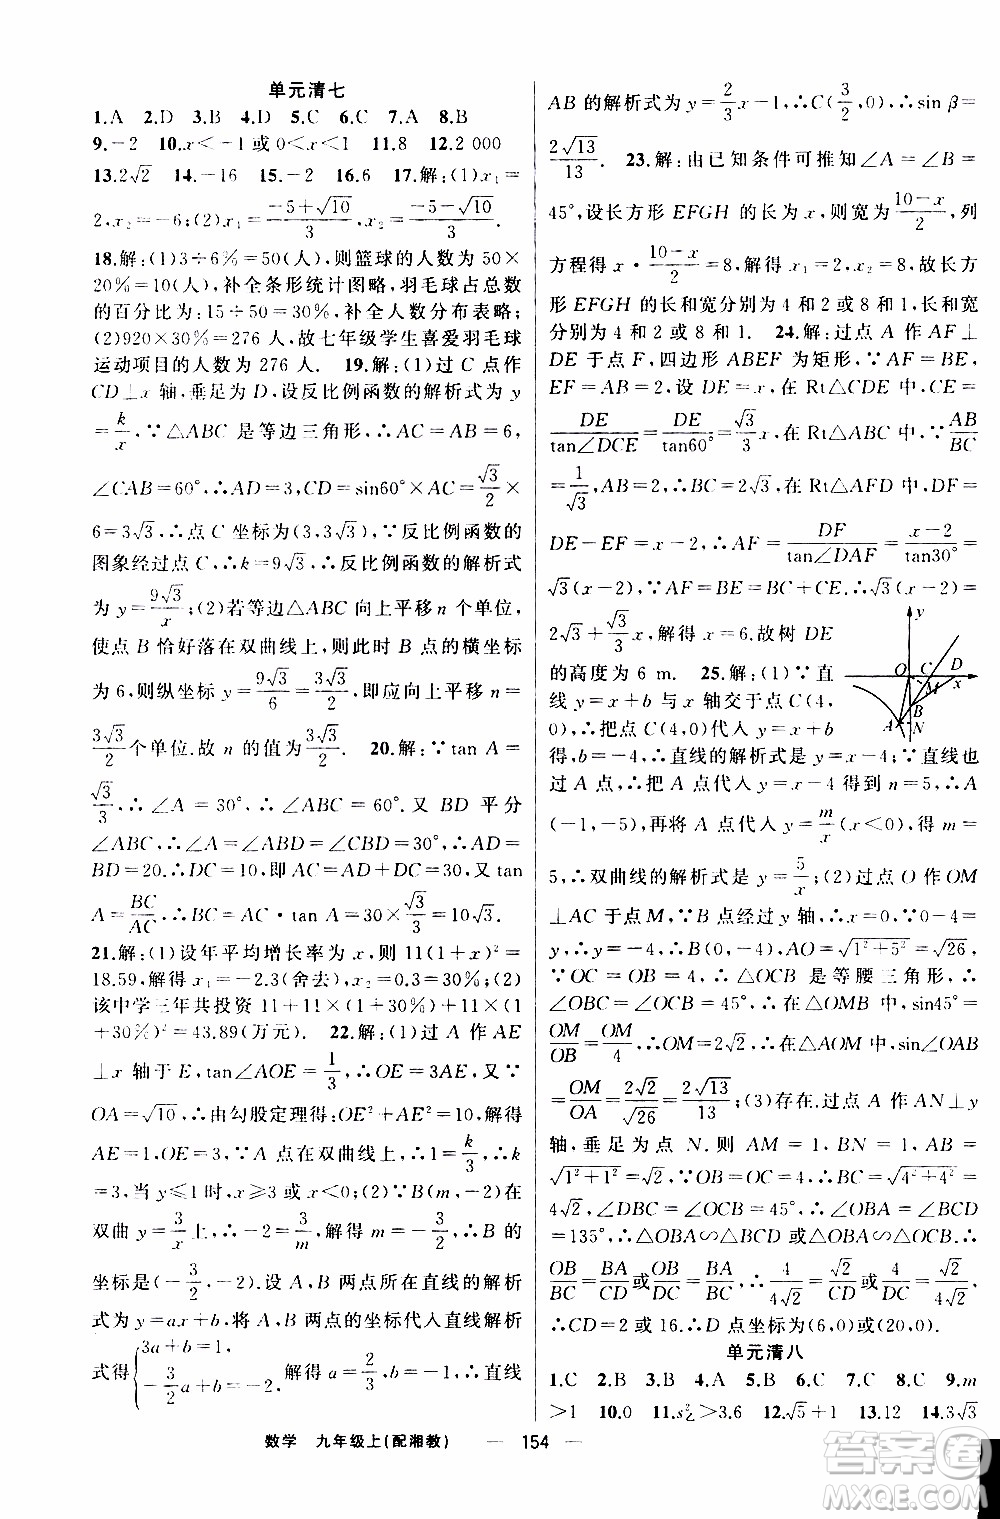 单元清七
1.A 2.D 3.B 4.D 5.C 6.C 7.A 8.B
9.-2 10.x<-1或0<x<1 11.8 12.2 000
13.2√2 14.-16 15.-2 16.6 17.解:(1)x₁=
2,x₂=-6;(2)x₁=(-5+√10)/3,x₂=(-5-√10)/3.
18.解:(1)3÷6%=50(人),则篮球的人数为50×
20%=10(人),补全条形统计图略,羽毛球占总数
的百分比为:15÷50=30%,补全人数分布表略;
(2)920×30%=276人,故七年级学生喜爱羽毛球
运动项目的人数为276人. 19.解:(1)过C点作
CD⊥x轴,垂足为D,设反比例函数的解析式为y
=k/x,∵△ABC是等边三角形,∴AC=AB=6,
∠CAB=60°,∴AD=3,CD=sin60°×AC=√3/2×
6=3√3,∴点C坐标为(3,3√3),∵反比例函数的
图象经过点C,∴k=9√3,∴反比例函数的解析式
为y=9√3/x;(2)若等边△ABC向上平移n个单位,
使点B恰好落在双曲线上,则此时B点的横坐标
为6,则纵坐标y=9√3/6=3√3/2,即应向上平移n=
3√3/2个单位.故n的值为3√3/2. 20.解:∵tan A=
√3/3,∴∠A=30°,∴∠ABC=60°.又BD平分
∠ABC,∴∠A=∠ABD=∠CBD=30°,∴AD=
BD=20.∴DC=10,∴AC=AD+DC=30,又tan
A=BC/AC,∴BC=AC·tan A=30×√3/3=10√3.
21.解:(1)设年平均增长率为x,则11(1+x)²=
18.59,解得x₁=-2.3(舍去),x₂=0.3=30%;(2)
该中学三年共投资11+11×(1+30%)+11×(1
+30%)²=43.89(万元). 22.解:(1)过A作AE
⊥x轴于E,tan∠AOE=1/3,∴OE=3AE,又∵
OA=√10,∴由勾股定理得:OE²+AE²=10,解得
AE=1,OE=3,∴A(3,1).∵A点在双曲线上,∴1=k/3,∴k=
3,当y≤1时,x≥3或x<0;(2)∵B(m,-2)在
双曲y=3/x上,∴-2=3/m,解得m=-3/2,∴B的
坐标是(-3/2,-2).设A,B两点所在直线的解析
式为y=ax+b,将A,B两点的坐标代入直线解析
式得{3a+b=1,-3/2a+b=-2,解得a=2/3,b=-1,∴直线
AB的解析式为y=2/3x-1,∴C(3/2,0),∴sin β=
2√13/13. 23.解:由已知条件可推知∠A=∠B=
45°,设长方形EFGH的长为x,则宽为(10-x)/2,列
方程得x·(10-x)/2=8,解得x₁=2,x₂=8,故长方
形EFGH的长和宽分别为4和2或8和1,长和宽
分别为4和2或8和1. 24.解:过点A作AF⊥
DE于点F,四边形ABEF为矩形,∵AF=BE,
EF=AB=2,设DE=x,在Rt△CDE中,CE=
DE/tan∠DCE=DE/tan60°=√3/3x,在Rt△ABC中,∵AB/BC
=1/√3,AB=2,∴BC=2√3,在Rt△AFD中,DF=
DE-EF=x-2,∴AF=DF/tan∠DAF=(x-2)/tan30°=
√3(x-2),∵AF=BE=BC+CE.∴√3(x-2)=
2√3+√3/3x,解得x=6.故树DE
的高度为6 m. 25.解:(1)∵直
线y=x+b与x轴交于点C(4,
0),∴把点C(4,0)代入y=x+b
得,b=-4,∴直线的解析式是:y=x-4;∵直线也
过A点,∴把A点代入y=x-4得到n=5,∴A
(-1,-5),再将A点代入y=m/x(x<0),得m=
5,∴双曲线的解析式是y=5/x;(2)过点O作OM
⊥AC于点M,∵B点经过y轴,∴x=0,∵0-4=
y,∴y=-4,∴B(0,-4),AO=√(1²+5²)=√26,
∵OC=OB=4,∴△OCB是等腰三角形,∴
∠OBC=∠OCB=45°,∴在△OMB中,sin45°=
OM/OB=OM/4,∴OM=2√2,∴在△AOM中,sin∠OAB
=OM/OA=2√2/√26=2√13/13;(3)存在.过点A作AN⊥y
轴,垂足为点N.则AM=1,BN=1,AB=
√(1²+1²)=√2,∵OB=OC=4,∴BC=√(4²+4²)=
4√2,∠DBC=∠OCB=45°,∴∠OBA=∠BCD
=135°,∴△OBA∽△BCD或△OBA∽△DCB,∴
OB/BC=BA/CD或OB/DC=BA/BC,∴4/4√2=√2/CD或4/CD=√2/4√2.
∴CD=2或16.∴D点坐标为(6,0)或(20,0).
O C D x y M B A N
单元清八
1.C 2.B 3.B 4.A 5.B 6.C 7.C 8.C 9.m
>1 10.0 11.s²乙>3.6 12.√5+1 13.12 14.3√3
数学 九年级上(配湘教) — 154 —
答案圈
MXQE.COM